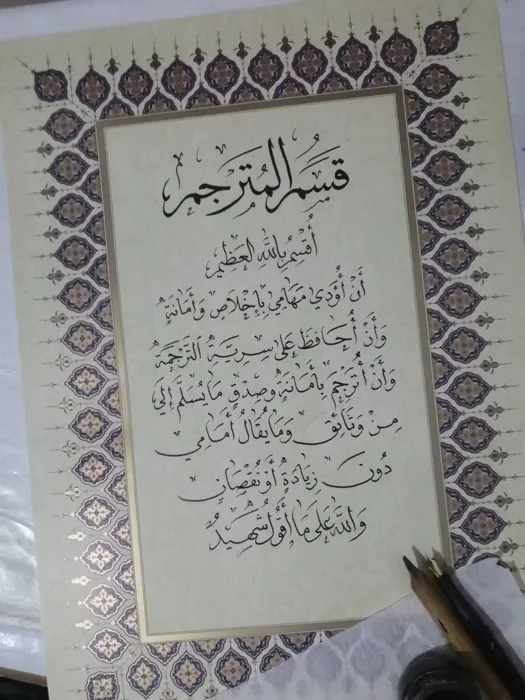 قَسَمُ المُتَرجِم
أُقْسِمُ بِاللَّهِ العَظِيمِ
أَنْ أُؤَدِّيَ مَهَامِي بِإِخْلَاصٍ وَأَمَانَةٍ
وَأَنْ أُحَافِظَ عَلَى سِرِيَّةِ التَّرْجَمَةِ
وَأَنْ أُتَرْجِمَ بِأَمَانَةٍ وَصِدْقٍ مَا يُسَلَّمُ إِلَيَّ
مِنْ وَثَائِقَ وَمَا يُقَالُ أَمَامِي
دُونَ زِيَادَةٍ أَوْ نُقْصَانٍ
وَاللَّهُ عَلَى مَا أَقُولُ شَهِيدٌ